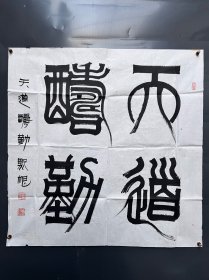 天道
酬勤
天道酬勤